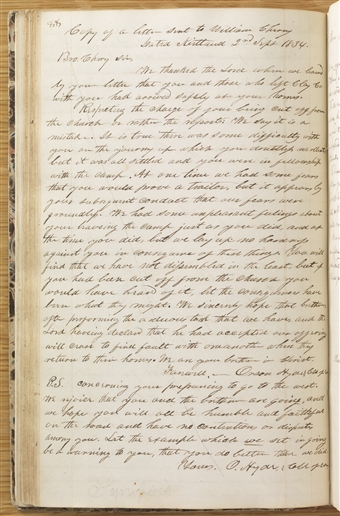 Copy of a letter sent to William Cherry
Dated Kirtland 2nd Sept. 1834.
Bro. Cherry Sir,
We thanked the Lord when we learned
by your letter that you and those who left Clay Co.
with you had arrived safely at your homes.
Respecting the charge of your being cut off from
the Church or rather the report We say it is a
mistake. It is true there was some difficulty with
you on the journey up which you doubtless recollect
but it was all settled and you were in fellowship
with the Camp. At one time we had some fears
that you would prove a traitor, but it appears by
your subsequent conduct that our fears were
groundless. We had some unpleasant feelings about
your leaving the Camp just as you did, and at
the time you did, but we lay up no hardness
against you in consequence of these things. You will
find that we have not dissembled in the least but if
you had been cut off from the Church you
would have heard of it, let the consequences have
been what they might. We sincerely hope that brethren
after performing the arduous task that we have and the
Lord having declared that he had accepted our offering
will cease to find fault with one another when they
return to their homes. We are your brethren in
Farewell,— Orson Hyde, Clerk
P.S. concerning your preparing to go to the west.
We rejoice that you and the brethren are going, and
we hope you will all be humble and faithful
on the road and have no contentions or disputes
among you. Let the example which we set in going
be a warning to you, that you do better than we did
Yours. O. Hyde,